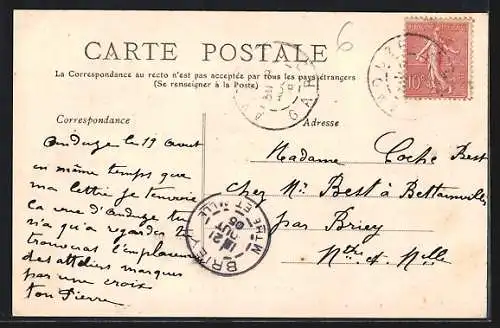 6
CARTE POSTALE
La Correspondance au recto n'est pas acceptée par tous les pays étrangers
(Se renseigner à la Poste)
GARD
10c
Correspondance
Anduze le 19 Aout
en même temps que
ma lettre je t'envoie
la vue d'Anduze tu
n'a qu'a regarder tu
trouveras l'emplacement
des atteliers marques
par une croix
ton Pierre
Adresse
Madame Coche Best
chez Mr Best à Bettainvillers
par Briey
Mthe et Mlle
BRIEY
MTHE ET MLLE
21
AOUT
05